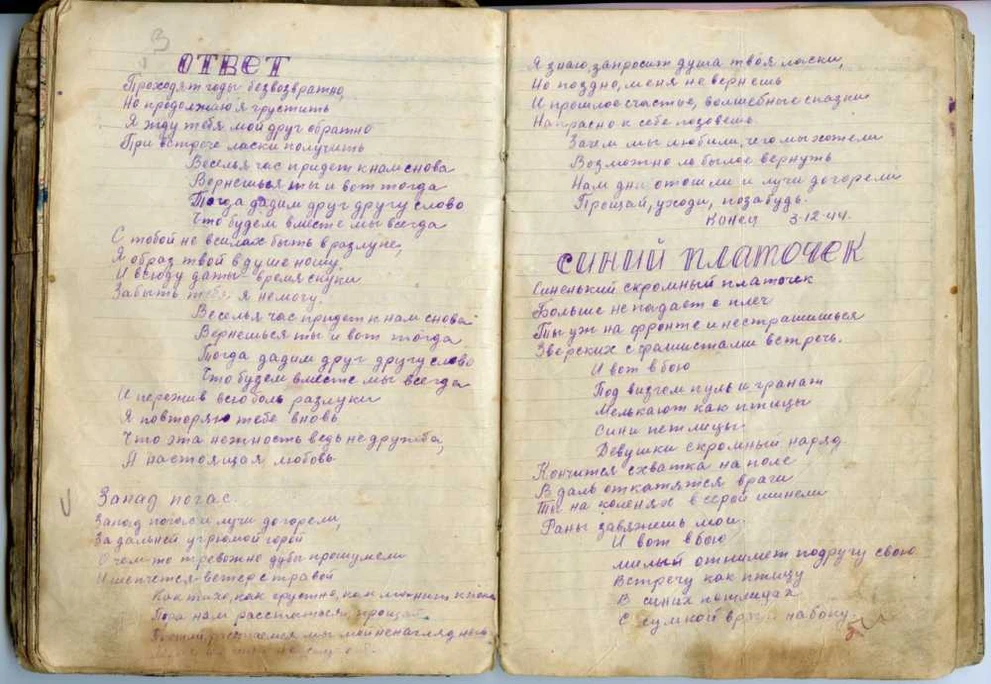 3
ОТВЕТ
Проходят годы безвозвратно,
Но продолжаю я грустить
Я жду тебя мой друг обратно
При встрече ласки получить
Веселья час придет к нам снова
Вернешься ты и вот тогда
Тогда дадим друг другу слово
Что будем вместе мы всегда
С тобой не в силах быть в разлуке,
Я образ твой в душе ношу,
И всюду даты время скуки
Забыть тебя я немогу.
Веселья час придет к нам снова
Вернешься ты и вот тогда
Тогда дадим друг другу слово
Что будем вместе мы всегда
И пережив всю боль разлуки
Я повторяю тебе вновь
Что эта нежность ведь не дружба,
А настоящая любовь
Запад погас.
Запад погас и лучи догорели,
За дальней угрюмой горой
О чем-то тревожно дубы прошумели
И шепчется ветер с травой
Как тихо, как грустно, как
Пора нам расстаться, прощай.
расстаемся мы мой ненаглядный
Я знаю, запросит душа твоя ласки,
Но поздно, меня не вернешь
И прошлое счастье, волшебные сказки
Напрасно к себе позовешь.
Зачем мы любили, чего мы хотели
Возможно ло былое вернуть
Нам дни отошли и лучи догорели
Прощай, уходи, позабудь.
Конец 3-12-44.
СИНИЙ ПЛАТОЧЕК
Синенький скромный платочек
Больше не падает с плеч
Ты уж на фронте и нестрашишься
Зверских с фашистами встречь.
И вот в бою
Под визгом пуль и гранат
Мелькают как птицы
Сини петлицы
Девушки скромный наряд.
Кончится схватка на поле
В даль откатятся враги
Ты на коленях в серой шинели
Раны завяжешь мои.
И вот в бою
милый отнимет подругу свою
Встречу как птицу
В синих петлицах
С сумкой врача на боку.